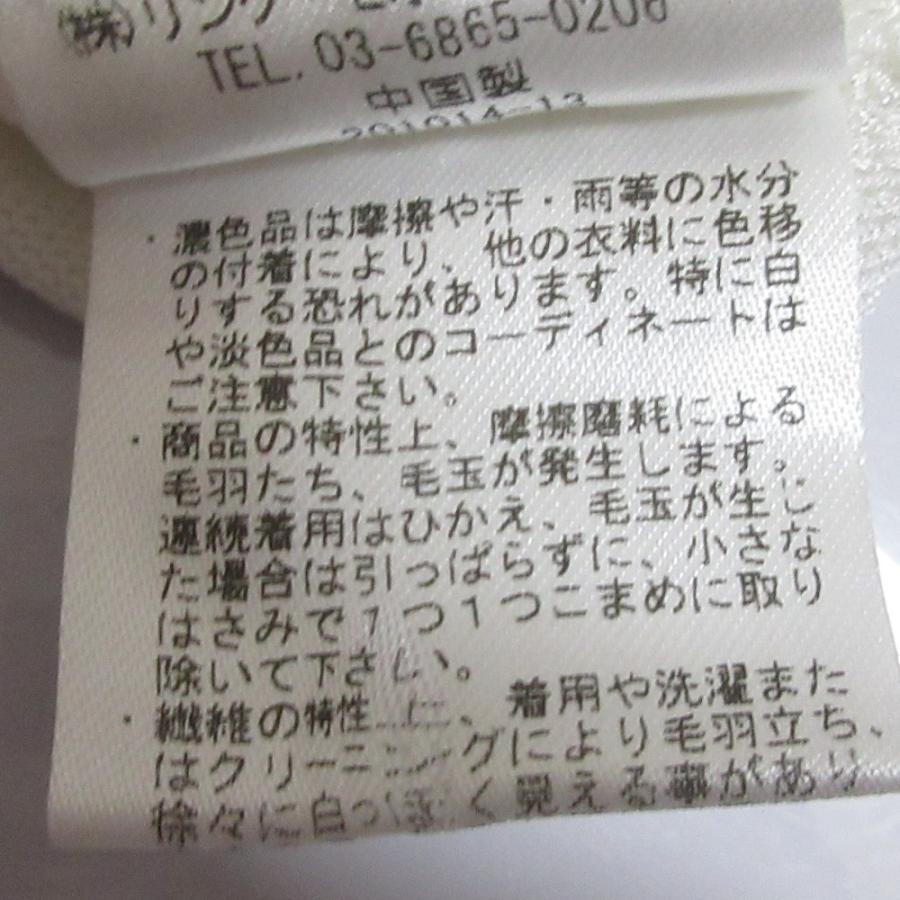 ㈱リンク
TEL. 03-6865-0206
中国製
201014-13
・濃色品は摩擦や汗・雨等の水分
の付着により、他の衣料に色移
りする恐れがあります。特に白
や淡色品とのコーディネートは
ご注意下さい。
・商品の特性上、摩擦磨耗による
毛羽たち、毛玉が発生します。
連続着用はひかえ、毛玉が生じ
た場合は引っぱらずに、小さな
はさみで1つ1つこまめに取り
除いて下さい。
・繊維の特性上、着用や洗濯また
はクリーニングにより毛羽立ち、
徐々に白っぽく見える事があり